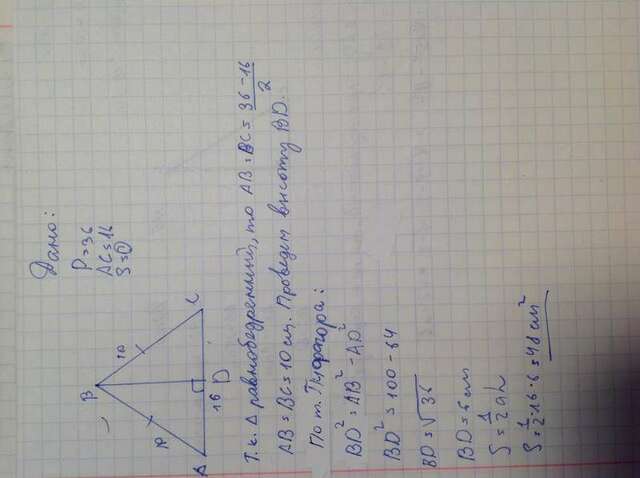 Дано:
P = 36
AC = 16
S = O
B
10
10
A
16
D
C
Т.к. Δ равнобедренный, то AB = BC = 36 - 16 / 2
AB = BC = 10 см. Проведем высоту BD.
По т. Пифагора:
BD² = AB² - AD²
BD² = 100 - 64
BD = √36
BD = 6 см
S = 1/2 ah
S = 1/2 · 16 · 6 = 48 см²